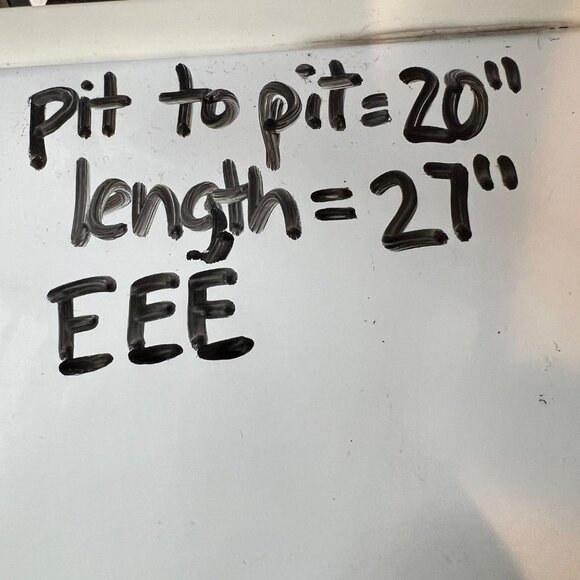 pit to pit=20"
length=27"
EEE